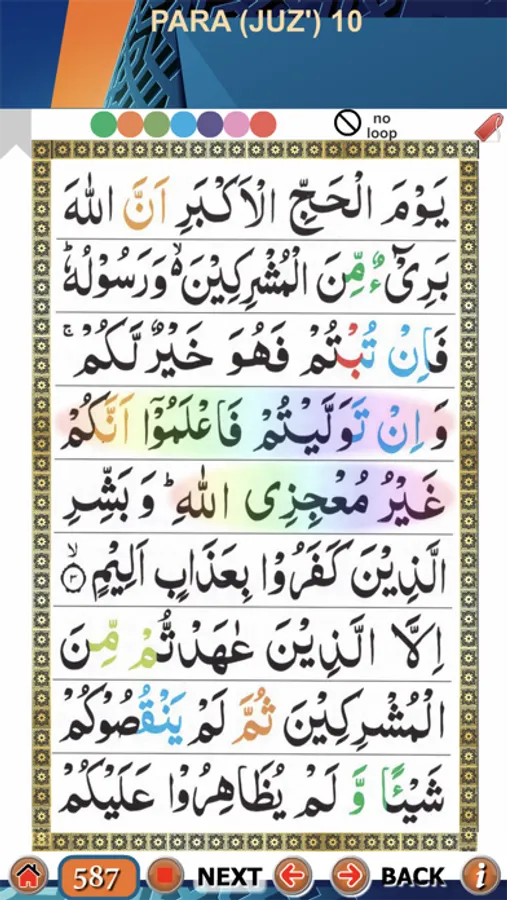 PARA (JUZ') 10
no
loop
يَوْمَ الْحَجِّ الْاَكْبَرِ اَنَّ اللّٰهَ
بَرِیْٓءٌ مِّنَ الْمُشْرِكِیْنَ ۙ۬ وَرَسُوْلُهٗ ؕ
فَاِنْ تُبْتُمْ فَهُوَ خَیْرٌ لَّكُمْ ۚ
وَ اِنْ تَوَلَّیْتُمْ فَاعْلَمُوْۤا اَنَّكُمْ
غَیْرُ مُعْجِزِی اللّٰهِ ؕ وَ بَشِّرِ
الَّذِیْنَ كَفَرُوْا بِعَذَابٍ اَلِیْمٍ ۙ۝۳
اِلَّا الَّذِیْنَ عٰهَدْتُّمْ مِّنَ
الْمُشْرِكِیْنَ ثُمَّ لَمْ یَنْقُصُوْكُمْ
شَیْـًٔا وَّ لَمْ یُظَاهِرُوْا عَلَیْكُمْ
587 NEXT BACK i